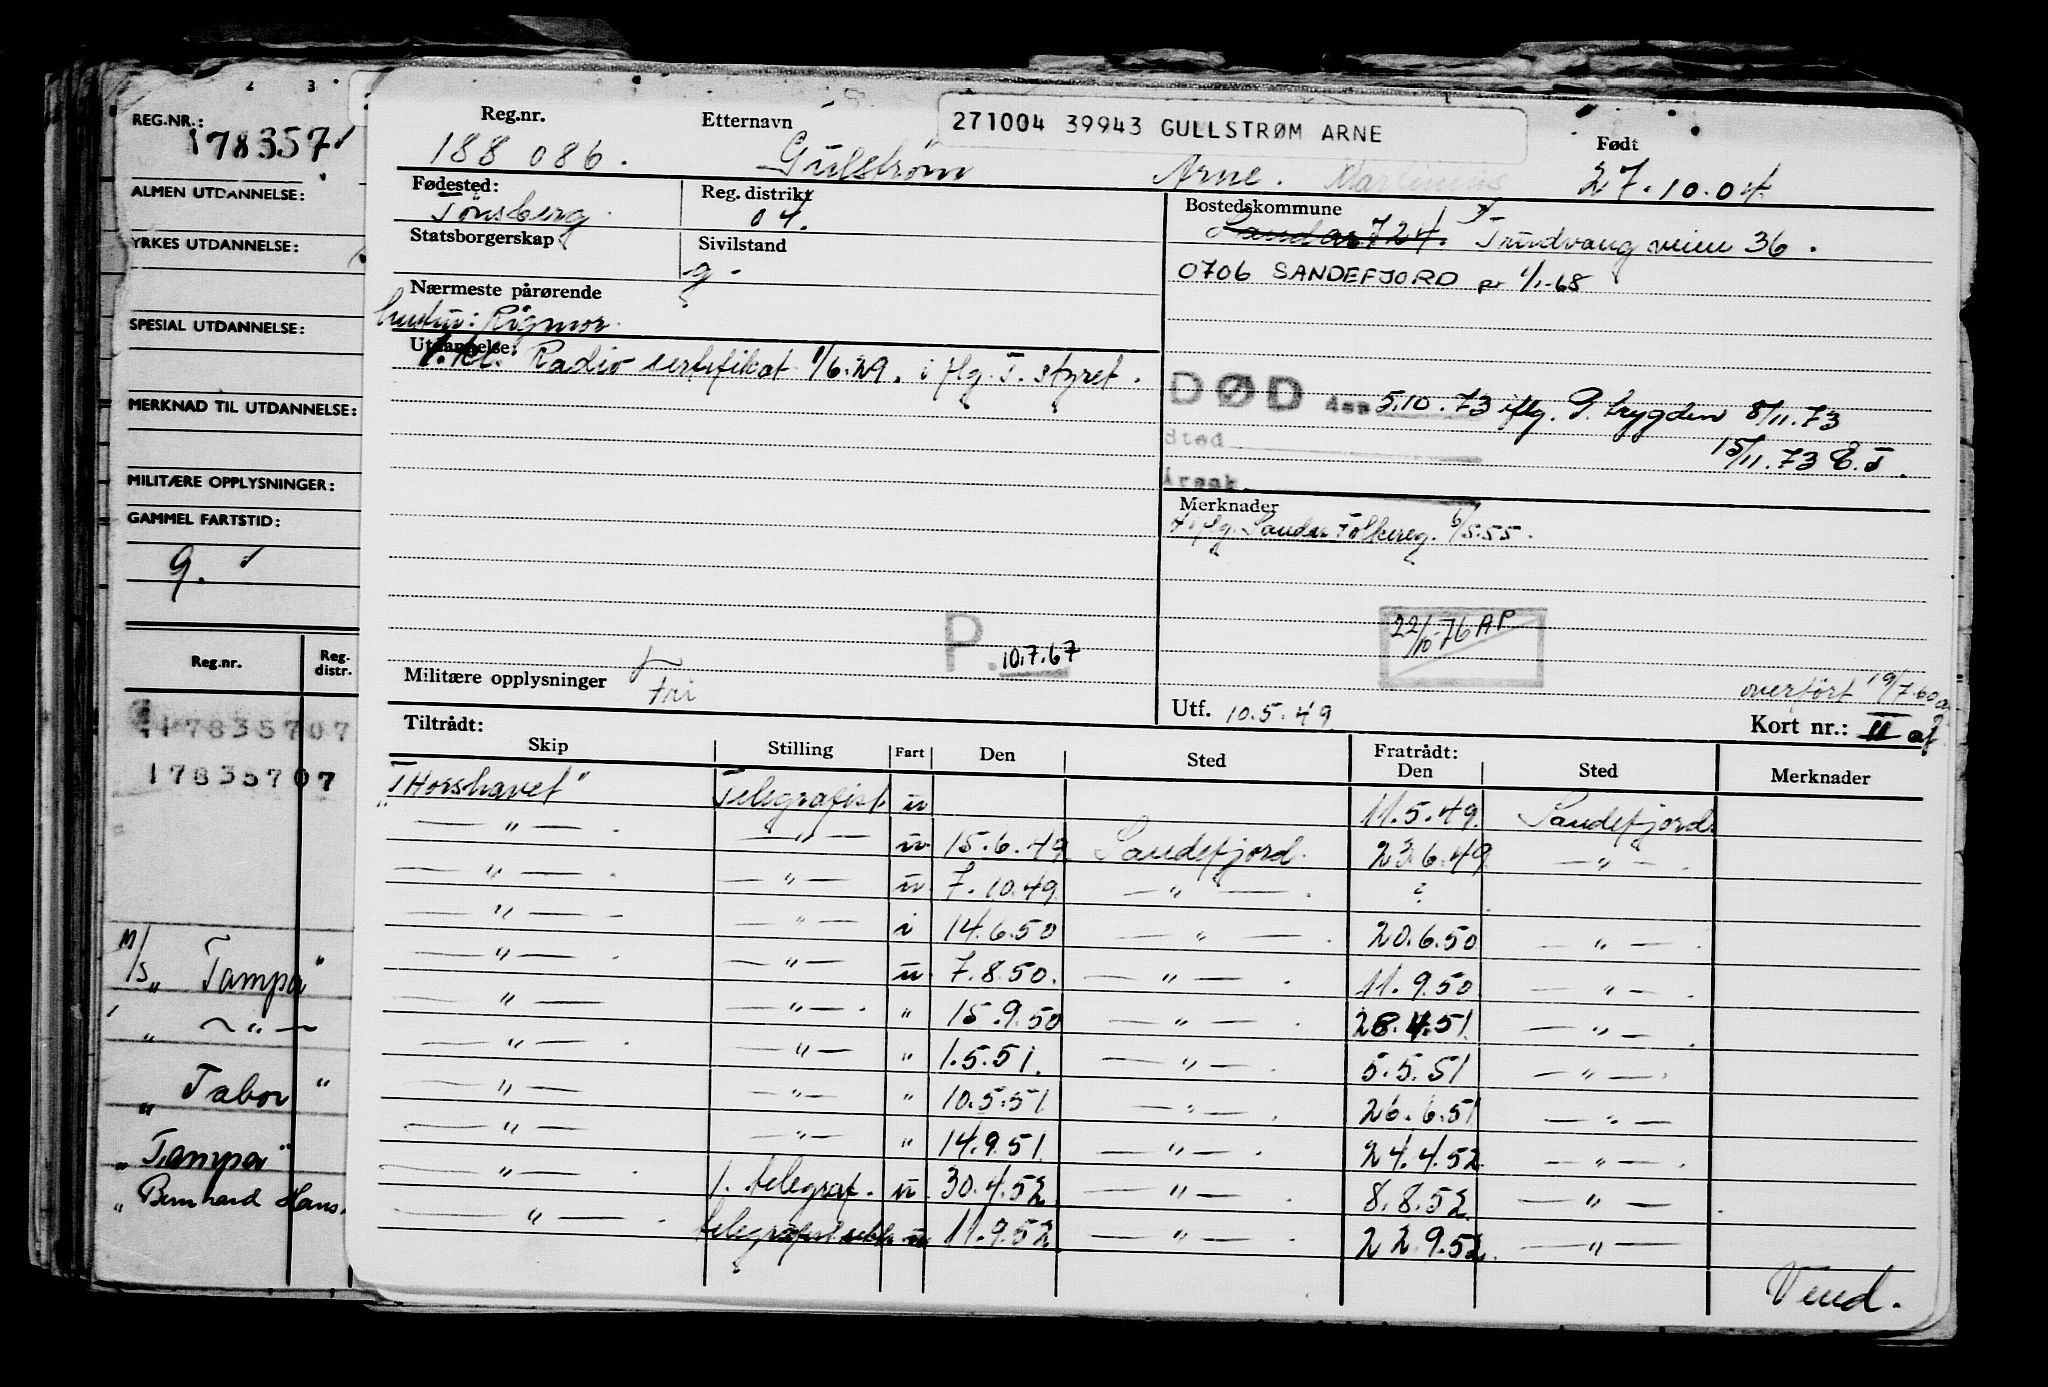 2 3
REG.NR.:
178357
ALMEN UTDANNELSE:
YRKES UTDANNELSE:
SPESIAL UTDANNELSE:
MERKNAD TIL UTDANNELSE:
MILITÆRE OPPLYSNINGER:
GAMMEL FARTSTID:
g.
Reg.nr. Reg. distr.
17835707
17835707
M/S „ Tampa"
„ — " —
„ Tabor "
„ Tampa"
„ Bernhard Hans.
271004 39943 GULLSTRØM ARNE
Reg.nr. Etternavn Født
188 086. Gulstrøm Arne. Martinius 27.10.04
Fødested: Reg. distrikt
Tönsberg. 04.
Statsborgerskap Sivilstand
g.
Nærmeste pårørende
hustru: Rigmor.
Utdannelse:
1. kl. Radio sertifikat 1/6.29. iflg. T. styret.
Militære opplysninger Fri
P. 10.7.67
Bostedskommune
Sandar 724. Trudvang veien 36.
0706 SANDEFJORD pr 1/1-68
DØD den 5.10.73 iflg. P. trygden 8/11.73
Sted 15/11.73 E.T.
Årsak
Merknader
Iflg. Sandar Folkereg. 6/5.55.
22/10-76 AP
overført 19/7.60
Utf. 10.5.49 Kort nr.: II af
Tiltrådt: Fratrådt:
Skip Stilling Fart Den Sted Den Sted Merknader
„THorshavet" Telegrafist u 11.5.49. Sandefjord.
— " — . — " — u. 15.6.49 Sandefjord. 23.6.49 — " — .
— " — . — " — u. 7.10.49 — " — . ?
— " — — " — i 14.6.50 — " — . 20.6.50 — " — .
— " — — " — u. 7.8.50. — " — . 11.9.50 — " — .
— " — — " — . " 15.9.50 — " — . 28.4.51. — " — .
— " — . — " — " 1.5.51. — " — . 5.5.51 — " — .
— " — — " — " 10.5.51 — " — . 26.6.51 — " —
— " — — " — " 14.9.51. — " — . 24.4.52. — " — .
— " — . 1. telegraf. u. 30.4.52 — " — . 8.8.52. — " — .
— " — . telegrafist u 11.9.52. — " — . 22.9.52. — " —
Vend.